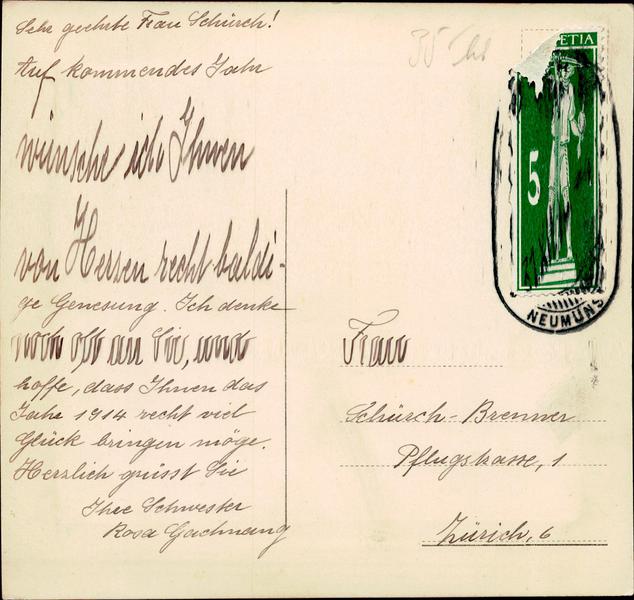 Sehr geehrte Frau Schürch!
Auf kommendes Jahr
wünsche ich Ihnen
von Herzen recht baldi-
ge Genesung. Ich denke
noch oft an Sie, und
hoffe, dass Ihnen das
Jahr 1914 recht viel
Glück bringen möge.
Herzlich grüsst Sie
Ihre Schwester
Rosa Gachnang
35
ETIA
5
NEUMÜNS
Frau
Schürch-Brenner
Pflugstrasse, 1
Zürich, 6